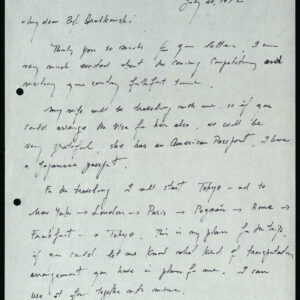 July 20, 19
My dear Dr.
Thank you so much for your letter. I am
very much excited about the coming competition and
visiting your country first time.
My wife will be travelling with me, so if you
could arrange the visa for her also, we will be
very grateful. She has an American Passport. I have
a Japanese passport.
For the travelling I will start Tokyo - and to
New York → London → Paris → Poznań → Rome →
Frankfurt → Tokyo. This is my plan for the trip.
if you could let me know what kind of transportation
arrangement you have in plan for me. I can
use it for together with mine.